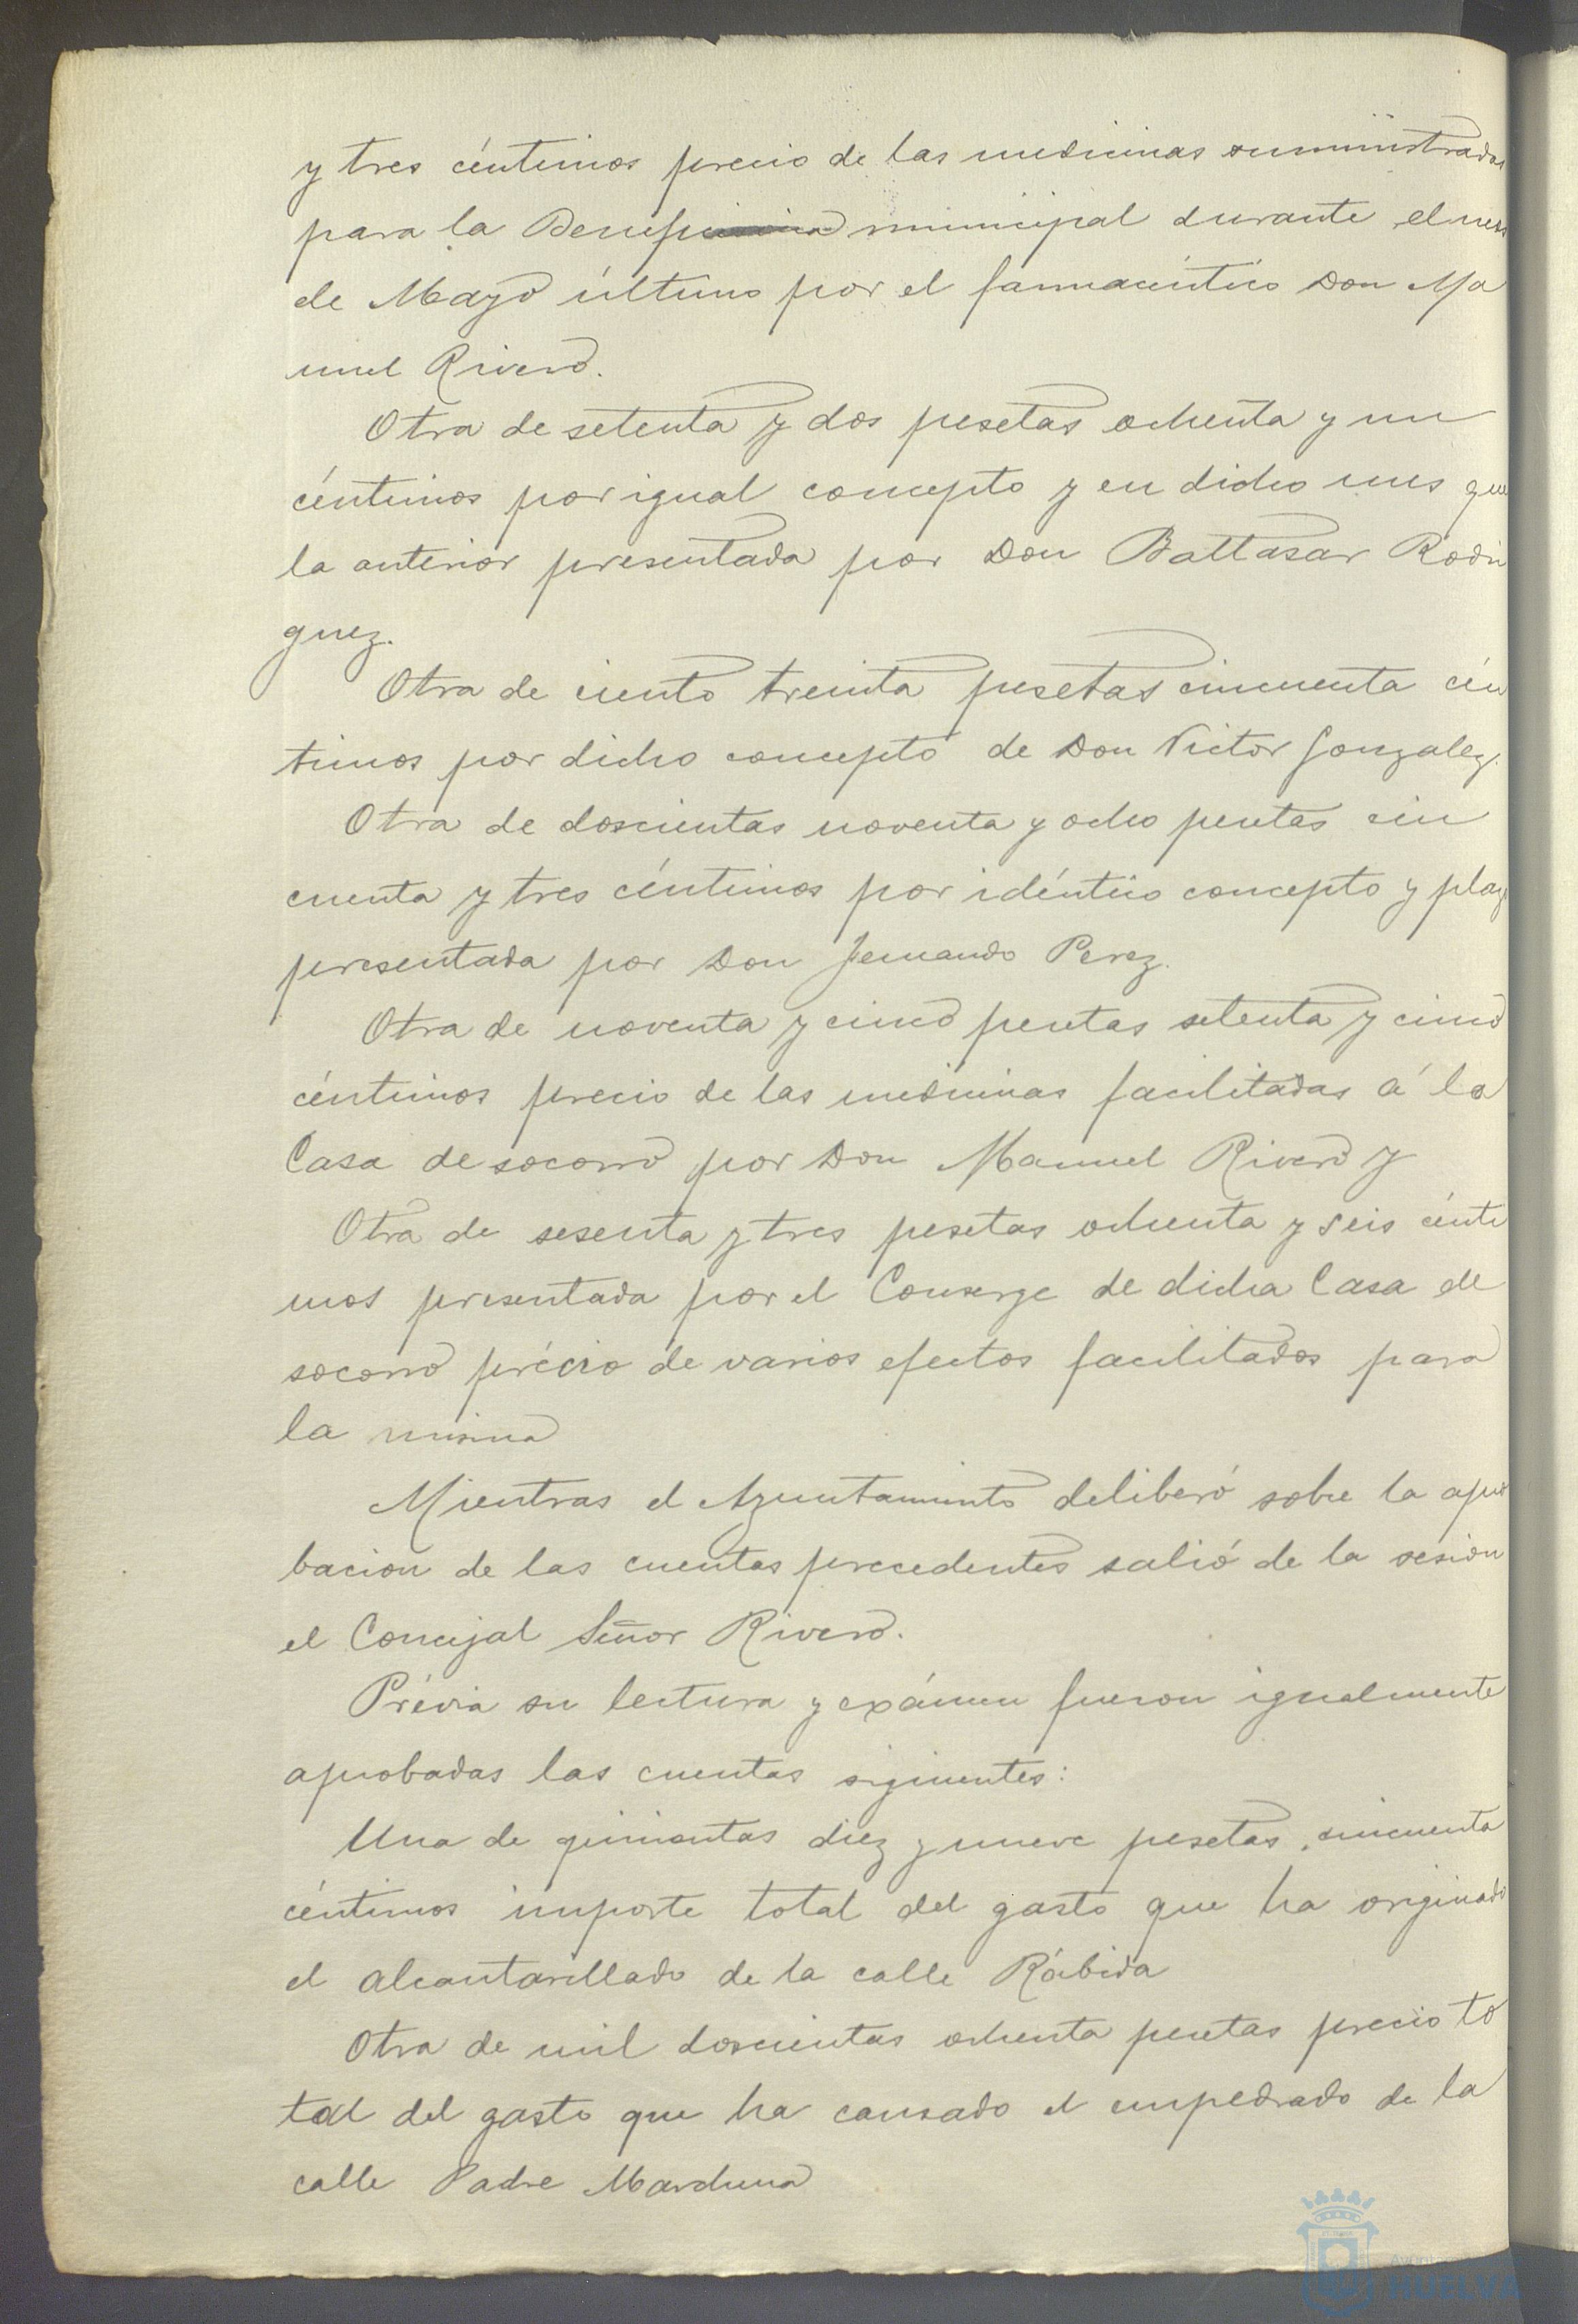 y tres céntimos precio de las medicinas suministradas
para la Beneficencia municipal durante el mes
de Mayo último por el farmacéutico Don Ma
nuel Rivero.
Otra de setenta y dos pesetas ochenta y un
céntimos por igual concepto y en dicho mes que
la anterior presentada por Don Baltasar Rodri
guez.
Otra de ciento treinta pesetas cincuenta cén
timos por dicho concepto de Don Victor Gonzalez.
Otra de doscientas noventa y ocho pesetas cin
cuenta y tres céntimos por idéntico concepto y plazo
presentada por Don Fernando Perez.
Otra de noventa y cinco pesetas setenta y cinco
céntimos precio de las medicinas facilitadas á la
Casa de socorro por Don Manuel Rivero y
Otra de sesenta y tres pesetas ochenta y seis cénti
mos presentada por el Conserge de dicha Casa de
socorro précio de varios efectos facilitados para
la misma
Mientras el Ayuntamiento deliberó sobre la apro
bacion de las cuentas precedentes salió de la sesion
el Concejal Señor Rivero.
Prévia su lectura y exámen fueron igualmente
aprobadas las cuentas siguientes:
Una de quinientas diez y nueve pesetas cincuenta
céntimos importe total del gasto que ha originado
el alcantarillado de la calle Rábida
Otra de mil doscientas ochenta pesetas precio to
tal del gasto que ha causado el empedrado de la
calle Padre Marchena
HUELVA